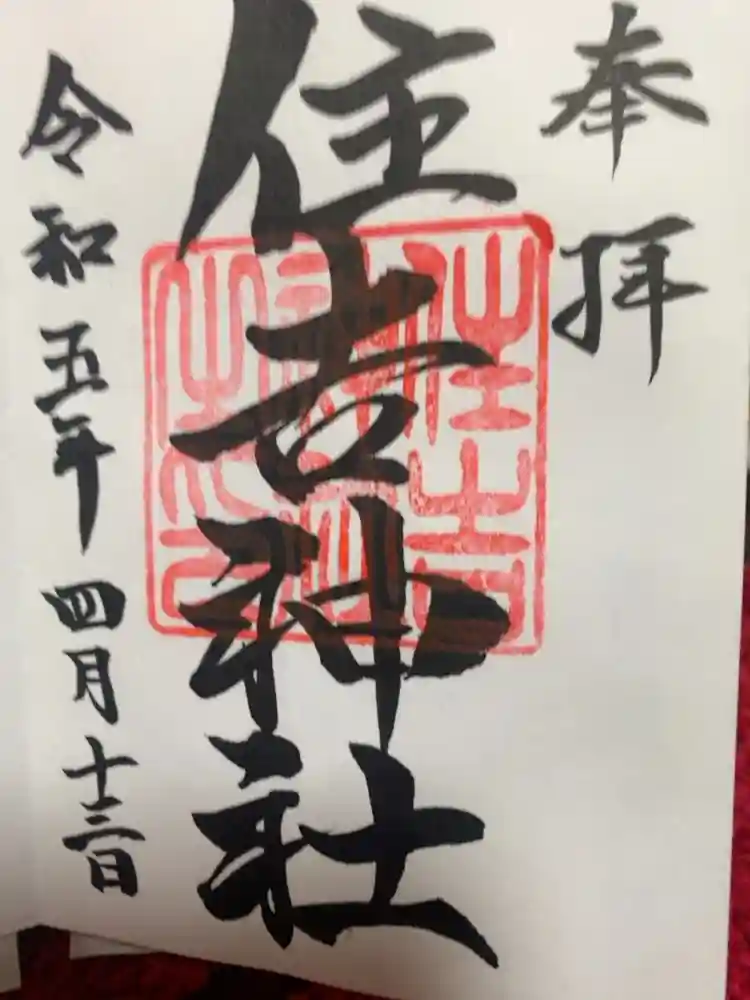 奉拝
住吉神社
令和五年四月十三日
住吉神社之印